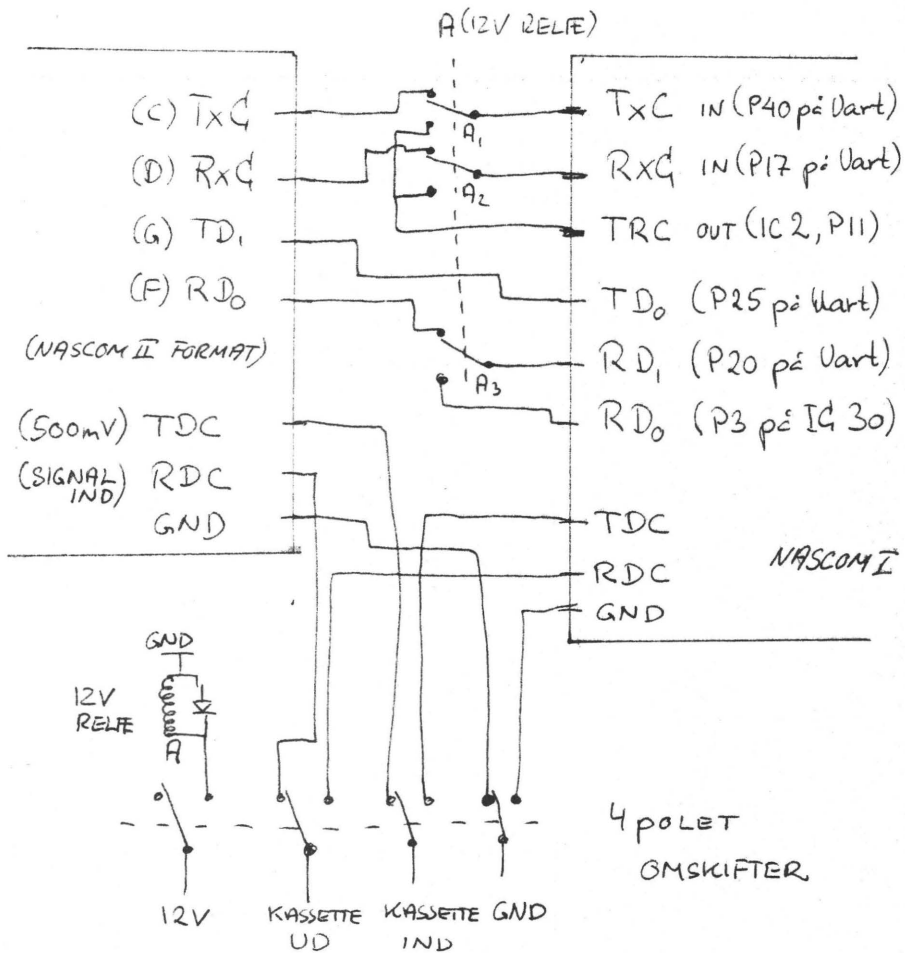 A (12V RELÆ)
(C) TxC
(D) RxC
(G) TD1
(F) RD0
(NASCOM II FORMAT)
(500mV) TDC
(SIGNAL IND) RDC
GND
A1
A2
A3
TxC IN (P40 på Uart)
RxC IN (P17 på Uart)
TRC OUT (IC 2, P11)
TD0 (P25 på Uart)
RD1 (P20 på Uart)
RD0 (P3 på IC 30)
TDC
RDC
GND
NASCOM I
GND
12V
RELÆ
A
4 POLET
OMSKIFTER
12V
KASSETTE
UD
KASSETTE
IND
GND